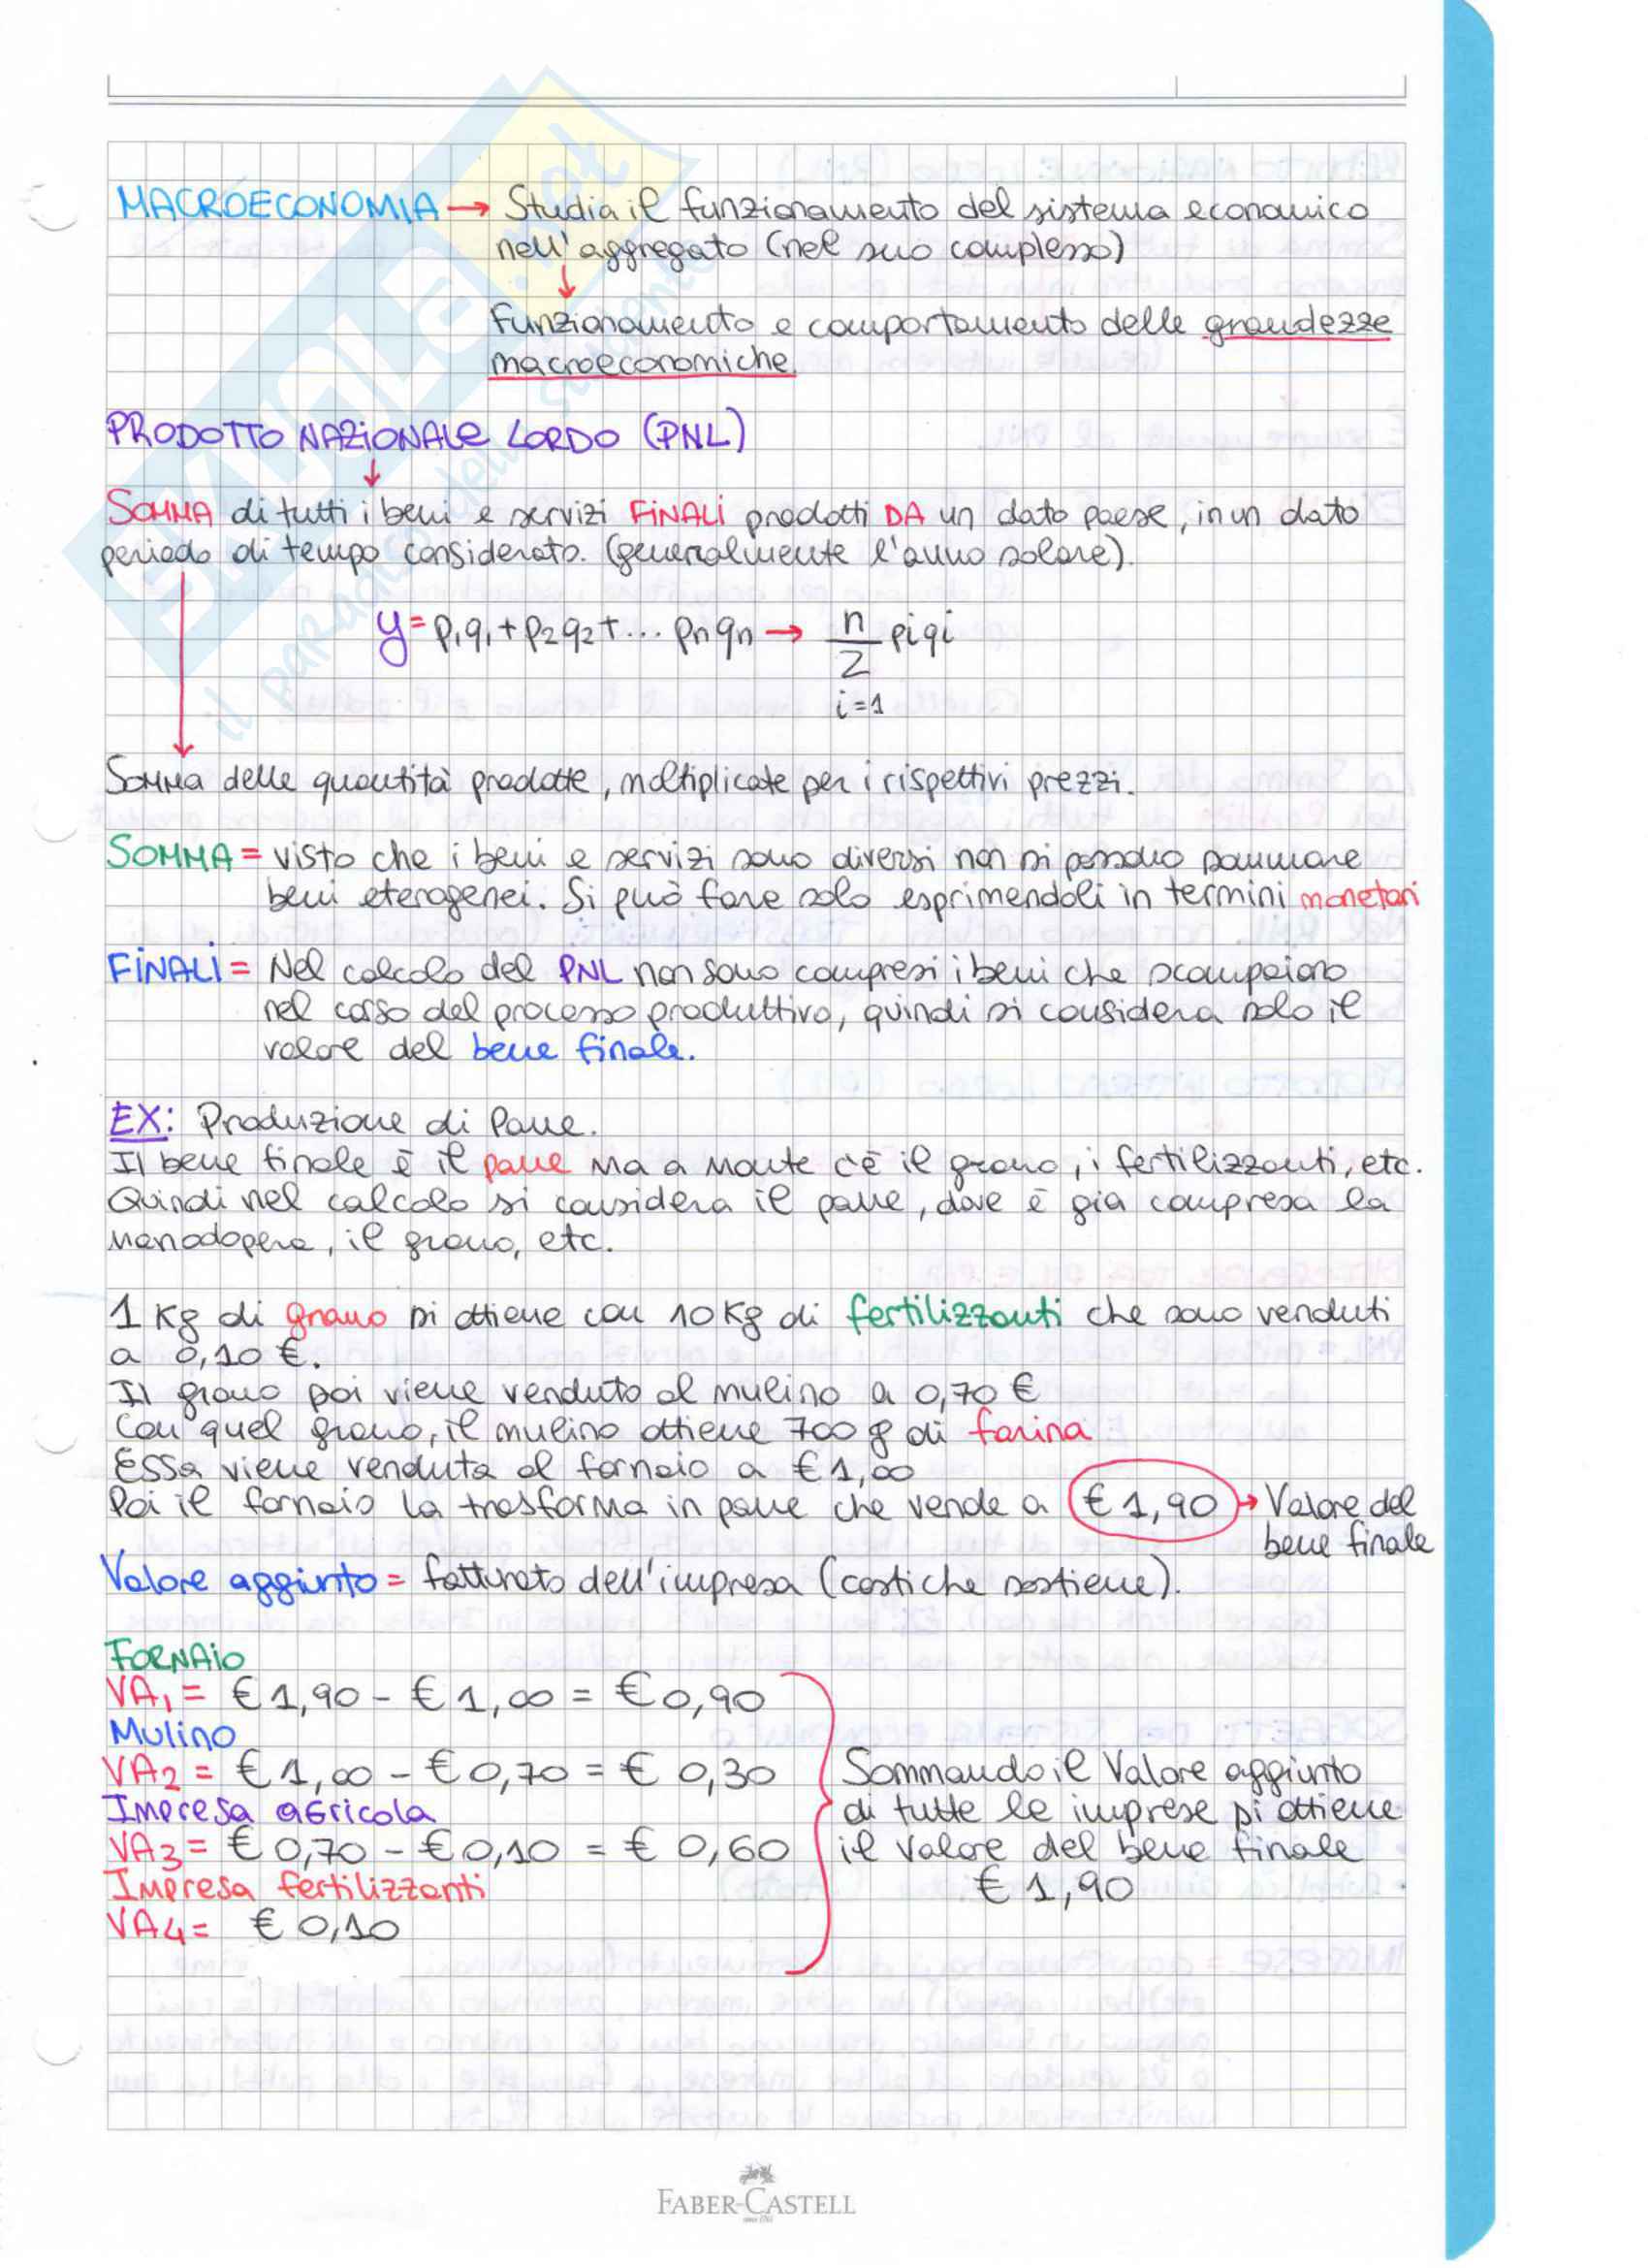 MACROECONOMIA → Studia il funzionamento del sistema economico
nell'aggregato (nel suo complesso)
↓
Funzionamento e comportamento delle grandezze
macroeconomiche.
PRODOTTO NAZIONALE LORDO (PNL)
↓
SOMMA di tutti i beni e servizi FINALI prodotti DA un dato paese, in un dato
periodo di tempo considerato. (generalmente l'anno solare).
y = p1q1 + p2q2 + ... pnqn → n
Σ piqi
i=1
SOMMA delle quantità prodotte, moltiplicate per i rispettivi prezzi.
SOMMA = visto che i beni e servizi sono diversi non si possono sommare
beni eterogenei. Si può fare solo esprimendoli in termini monetari
FINALI = Nel calcolo del PNL non sono compresi i beni che scompaiono
nel corso del processo produttivo, quindi si considera solo il
valore del bene finale.
EX: Produzione di Pane.
Il bene finale è il pane ma a monte c'è il grano, i fertilizzanti, etc.
Quindi nel calcolo si considera il pane, dove è già compresa la
manodopera, il grano, etc.
1 Kg di grano si ottiene con 10 Kg di fertilizzanti che sono venduti
a 0,10 €.
Il grano poi viene venduto al mulino a 0,70 €
Con quel grano, il mulino ottiene 700 g di farina
Essa viene venduta al fornaio a € 1,00
Poi il fornaio la trasforma in pane che vende a € 1,90 → Valore del
bene finale
Valore aggiunto = fatturato dell'impresa (costi che sostiene).
FORNAIO
VA1 = € 1,90 - € 1,00 = € 0,90
Mulino
VA2 = € 1,00 - € 0,70 = € 0,30
Impresa agricola
VA3 = € 0,70 - € 0,10 = € 0,60
Impresa fertilizzanti
VA4 = € 0,10
Sommando il Valore aggiunto
di tutte le imprese si ottiene
il valore del bene finale
€ 1,90
SKUOLA.net
il paradiso dello studente
FABER-CASTELL
since 1761